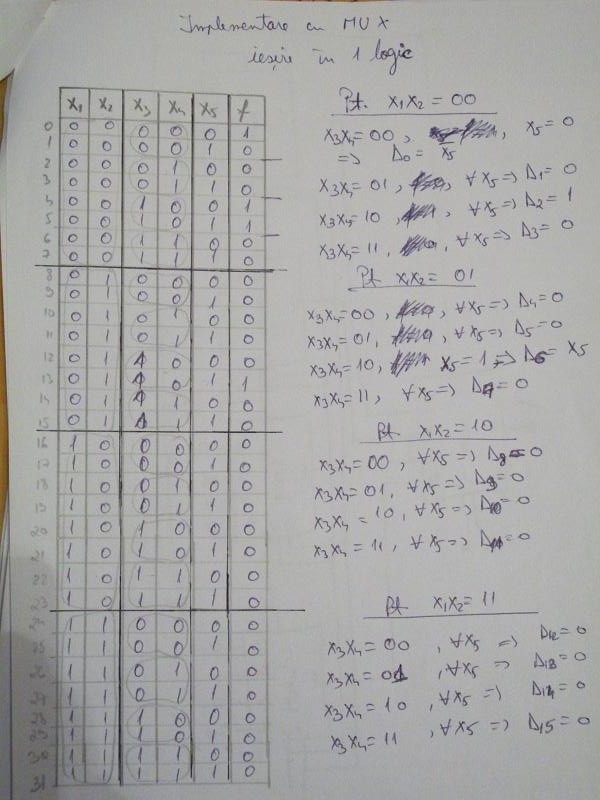 Implementare cu MUX
ieșire în 1 logic
x1 x2 x3 x4 x5 f
0 0 0 0 0 0 1
1 0 0 0 0 1 0
2 0 0 0 1 0 0
3 0 0 0 1 1 0
4 0 0 1 0 0 1
5 0 0 1 0 1 1
6 0 0 1 1 0 0
7 0 0 1 1 1 0
8 0 1 0 0 0 0
9 0 1 0 0 1 0
10 0 1 0 1 0 0
11 0 1 0 1 1 0
12 0 1 1 0 0 0
13 0 1 1 0 1 1
14 0 1 1 1 0 0
15 0 1 1 1 1 0
16 1 0 0 0 0 0
17 1 0 0 0 1 0
18 1 0 0 1 0 0
19 1 0 0 1 1 0
20 1 0 1 0 0 0
21 1 0 1 0 1 0
22 1 0 1 1 0 0
23 1 0 1 1 1 0
24 1 1 0 0 0 0
25 1 1 0 0 1 0
26 1 1 0 1 0 0
27 1 1 0 1 1 0
28 1 1 1 0 0 0
29 1 1 1 0 1 0
30 1 1 1 1 0 0
31 1 1 1 1 1 0
Pt. x1x2 = 00
x3x4 = 00 , , x5 = 0
=> D0 = x̅5
x3x4 = 01 , , ∀x5 => D1 = 0
x3x4 = 10 , , ∀x5 => D2 = 1
x3x4 = 11 , , ∀x5 => D3 = 0
Pt x1x2 = 01
x3x4 = 00 , , ∀x5 => D4 = 0
x3x4 = 01 , , ∀x5 => D5 = 0
x3x4 = 10 , x5 = 1 => D6 = x5
x3x4 = 11 , ∀x5 => D7 = 0
Pt x1x2 = 10
x3x4 = 00 , ∀x5 => D8 = 0
x3x4 = 01 , ∀x5 => D9 = 0
x3x4 = 10 , ∀x5 => D10 = 0
x3x4 = 11 , ∀x5 => D11 = 0
Pt x1x2 = 11
x3x4 = 00 , ∀x5 => D12 = 0
x3x4 = 01 , ∀x5 => D13 = 0
x3x4 = 10 , ∀x5 => D14 = 0
x3x4 = 11 , ∀x5 => D15 = 0